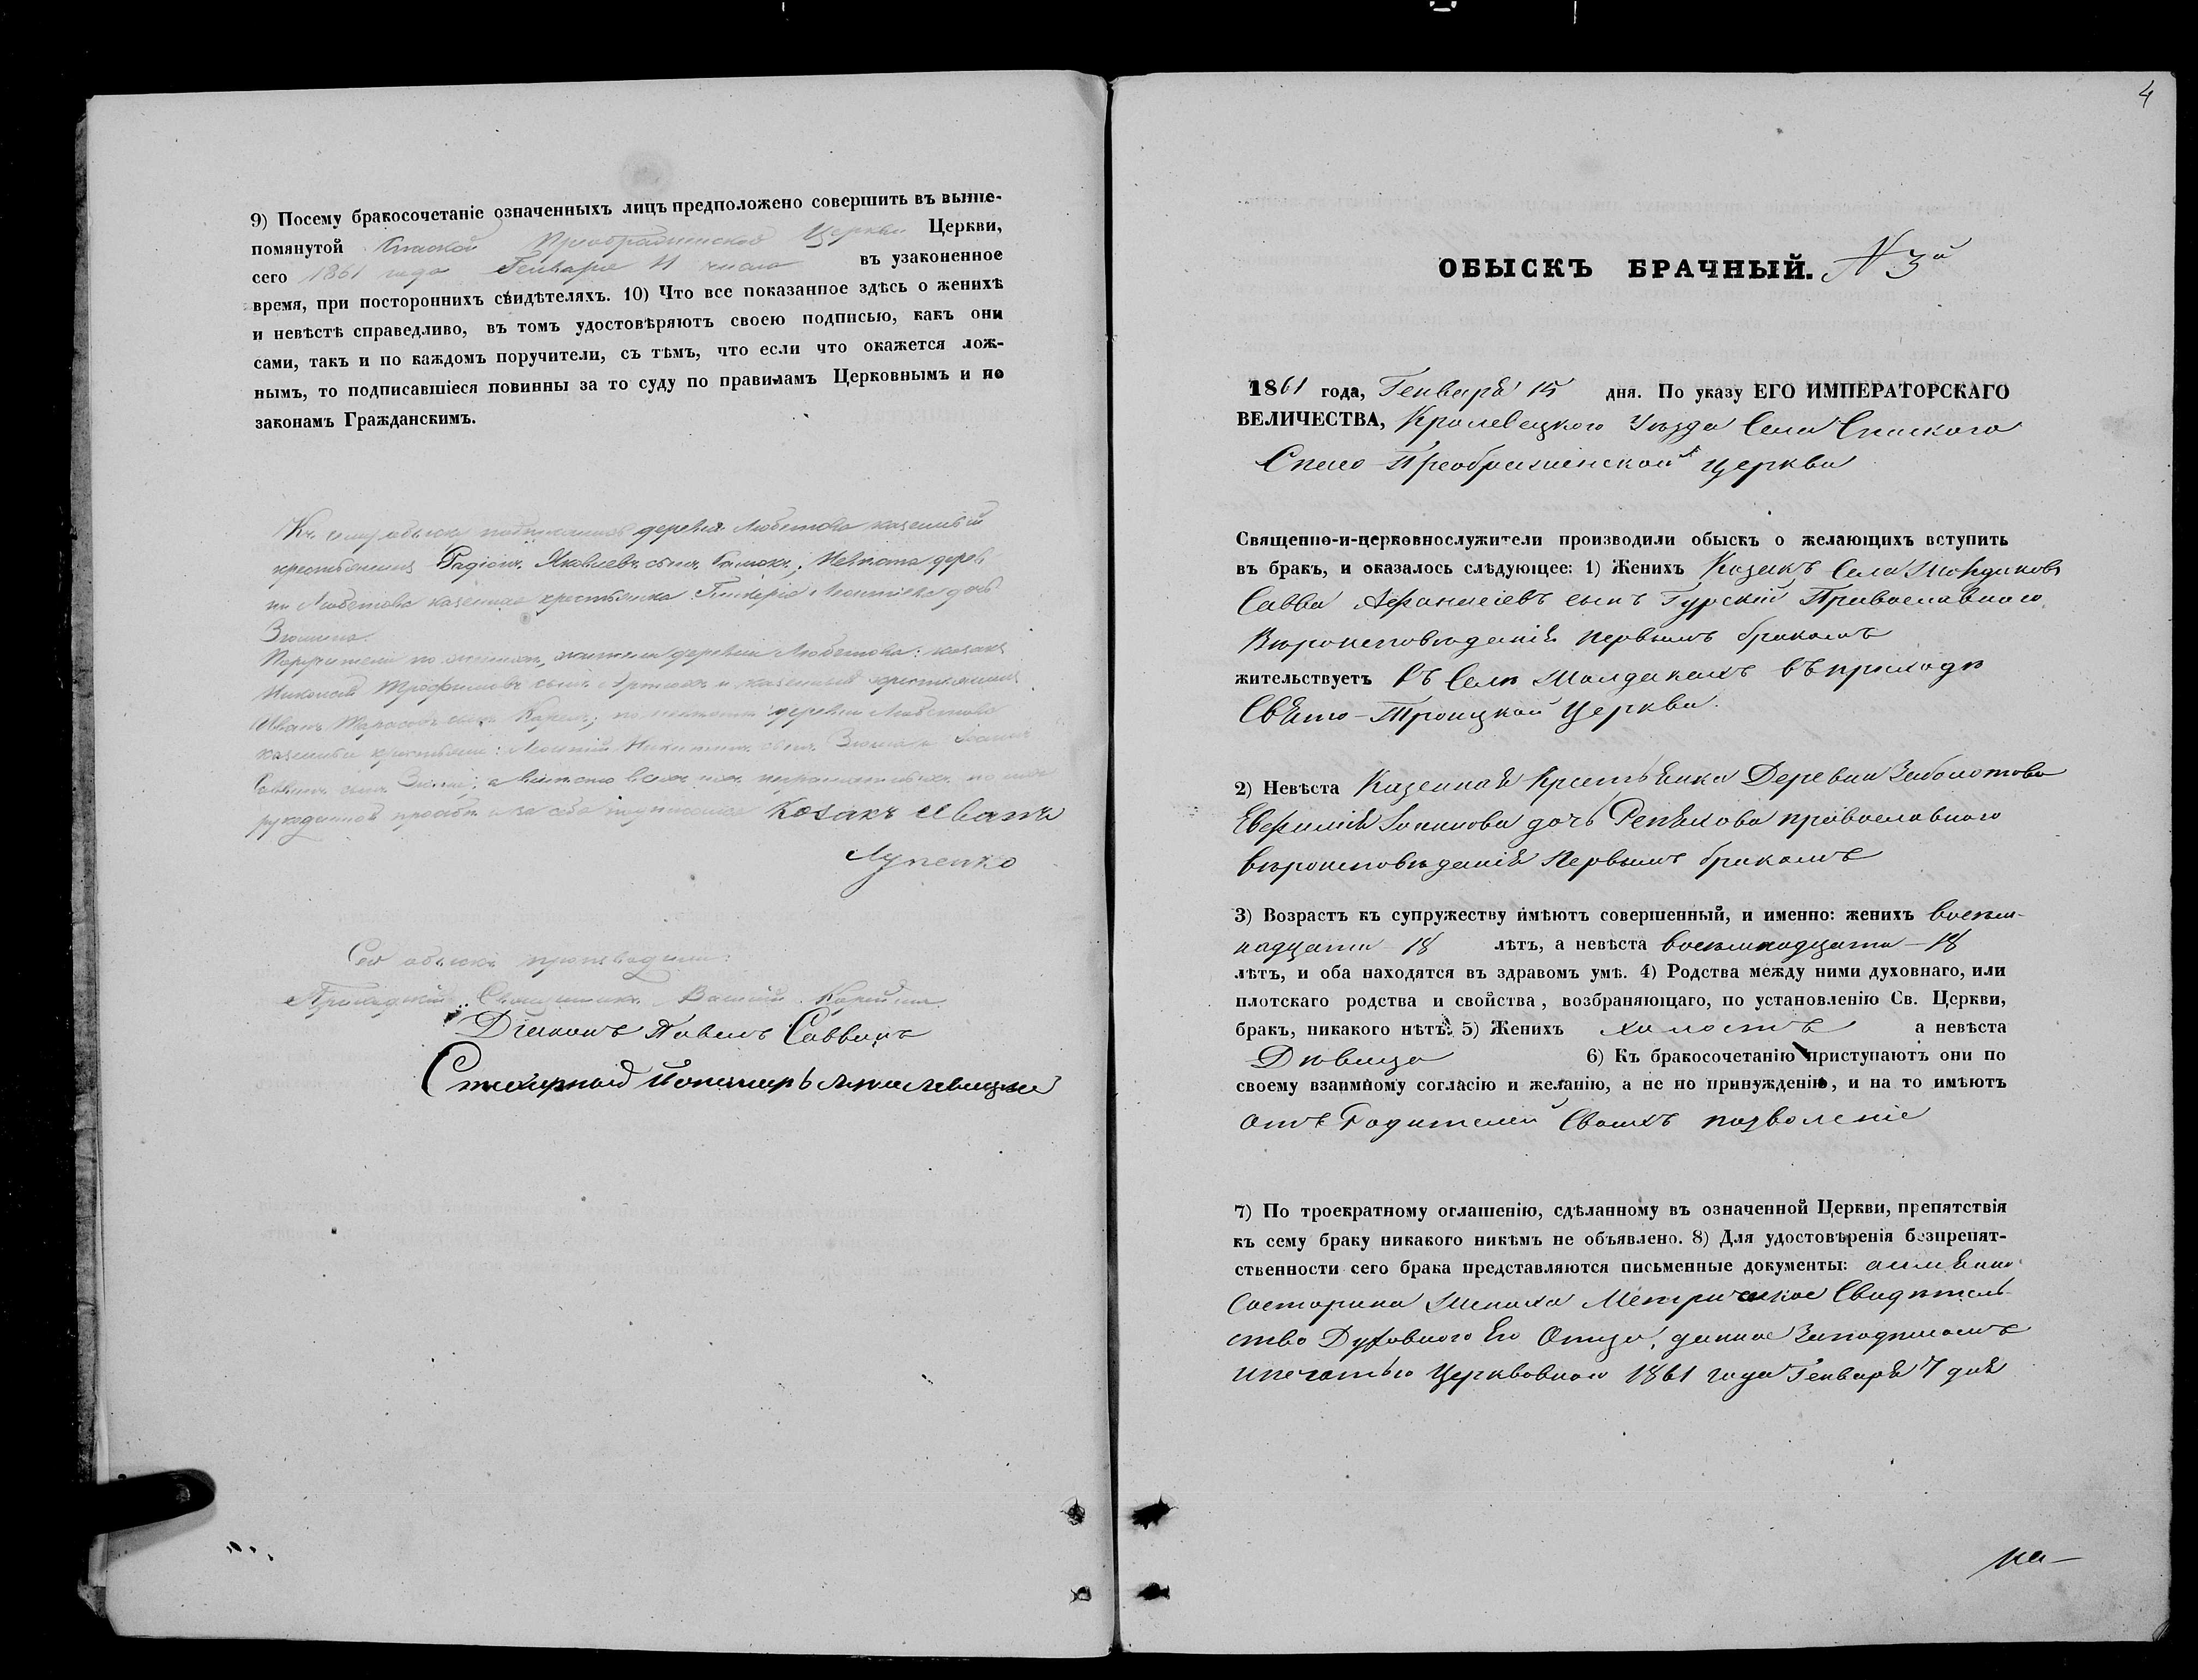 9) Посему бракосочетаніе означенныхъ лицъ предположено совершить въ выше-
помянутой Спаской Преображенской Церкви Церкви,
сего 1861 года Генваря 11 числа въ узаконенное
время, при постороннихъ свидѣтеляхъ. 10) Что все показанное здѣсь о женихѣ
и невѣстѣ справедливо, въ томъ удостовѣряютъ своею подписью, какъ они
сами, такъ и по каждомъ поручители, съ тѣмъ, что если что окажется лож-
нымъ, то подписавшіеся повинны за то суду по правиламъ Церковнымъ и по
законамъ Гражданскимъ.
Къ сему обыску деревни Любитова казенный
крестьянинъ Радіонъ Яковлевъ сынъ Невѣста дерев
ни Любитова казенная крестьянка дочь
Поручители по женихѣ, жители деревни Любитова: козакъ
Николай Трофимовъ сынъ и казенный крестьянинъ
Иванъ Тарасовъ сынъ по невѣстѣ деревни Любитова
казенные крестьяне: Леонтій Никитинъ сынъ
Саввинъ сынъ а вмѣсто всѣхъ ихъ неграмотныхъ по ихъ
рукоданной прозьбѣ и за себя подписался Козакъ Иванъ
Лупенко
Сей обыскъ производили:
Приходскій Священникъ
Діаконъ Павелъ Саввичъ
Стихарный Пономарь
4
ОБЫСКЪ БРАЧНЫЙ. N 3й
1861 года, Генваря 15 дня. По указу ЕГО ИМПЕРАТОРСКАГО
ВЕЛИЧЕСТВА, Кролевецкого Уѣзда Села Спаского
Спасо-Преображенской Церкви
Священно-и-церковнослужители производили обыскъ о желающихъ вступить
въ бракъ, и оказалось слѣдующее: 1) Женихъ Козакъ Села
Савва Афанасіевъ сынъ Гурскій Православного
Вѣроисповѣданія первымъ бракомъ
жительствуетъ въ Селѣ въ приходѣ
Свято-Троицкой Церкви.
2) Невѣста Казенная Крестьянка Деревни Заболотова
Евфимія дочь православного
вѣроисповѣданія первымъ бракомъ
3) Возрастъ къ супружеству имѣютъ совершенный, и именно: женихъ восем-
надцати 18 лѣтъ, а невѣста восемнадцати – 18
лѣтъ, и оба находятся въ здравомъ умѣ. 4) Родства между ними духовнаго, или
плотскаго родства и свойства, возбраняющаго, по установленію Св. Церкви,
бракъ, никакого нѣтъ. 5) Женихъ холостъ а невѣста
Дѣвица 6) Къ бракосочетанію приступаютъ они по
своему взаимному согласію и желанію, а не по принужденію, и на то имѣютъ
отъ Родителей Своихъ позволеніе
7) По троекратному оглашенію, сдѣланному въ означенной Церкви, препятствія
къ сему браку никакого никѣмъ не объявлено. 8) Для удостовѣренія безпрепят-
ственности сего брака представляются письменные документы:
Жениха Метрическое Свидѣтель-
ство Духовного Его Отца, данное За подписомъ
и печатью Церковною 1861 года Генваря 7 дня
на–